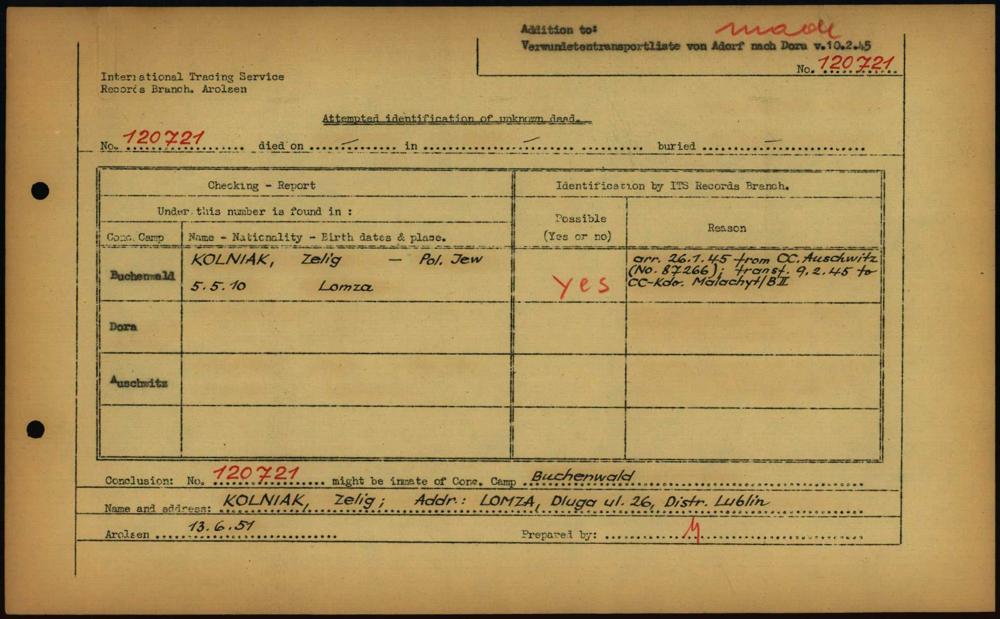 Addition to: made
Verwundetentransportliste von Adorf nach Dora v.10.2.45
No. 120721
International Tracing Service
Records Branch. Arolsen
Attempted identification of unknown dead.
No. 120721 died on – in – buried –
Checking - Report
Identification by ITS Records Branch.
Under this number is found in :
Possible
(Yes or no)
Reason
Conc. Camp
Name - Nationality - Birth dates & place.
Buchenwald
KOLNIAK, Zelig – Pol. Jew
5.5.10 Lomza
yes
arr. 26.1.45 from CC. Auschwitz
(No. 87266); transf. 9.2.45 to
CC-Kdo. Malachyt/B II
Dora
Auschwitz
Conclusion: No. 120721 might be inmate of Conc. Camp Buchenwald
Name and address: KOLNIAK, Zelig; Addr.: LOMZA, Dluga ul. 26, Distr. Lublin
Arolsen 13.6.51 Prepared by: